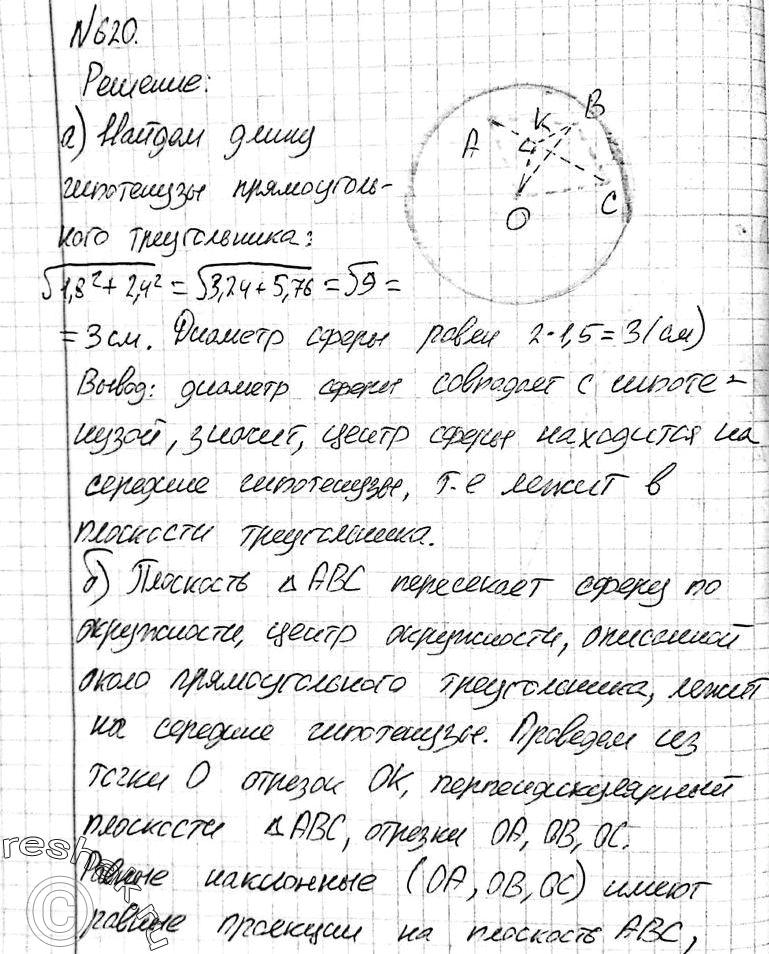 №620.
Решение:
а) Найдем длину
гипотенузы прямоуголь-
ного треугольника:
√1,8²+2,4² = √3,24+5,76 = √9 =
= 3 см. Диаметр сферы равен 2·1,5=3(см)
Вывод: диаметр сферы совпадает с гипоте-
нузой, значит, центр сферы находится на
середине гипотенузы, т.е лежит в
плоскости треугольника.
б) Плоскость △ABC пересекает сферу по
окружности, центр окружности, описанной
около прямоугольного треугольника, лежит
на середине гипотенузы. Проведем из
точки O отрезок OK, перпендикулярный
плоскости △ABC, отрезки OA, OB, OC.
Равные наклонные (OA, OB, OC) имеют
равные проекции на плоскость ABC,
A
K
B
O
C
reshak.ru
©